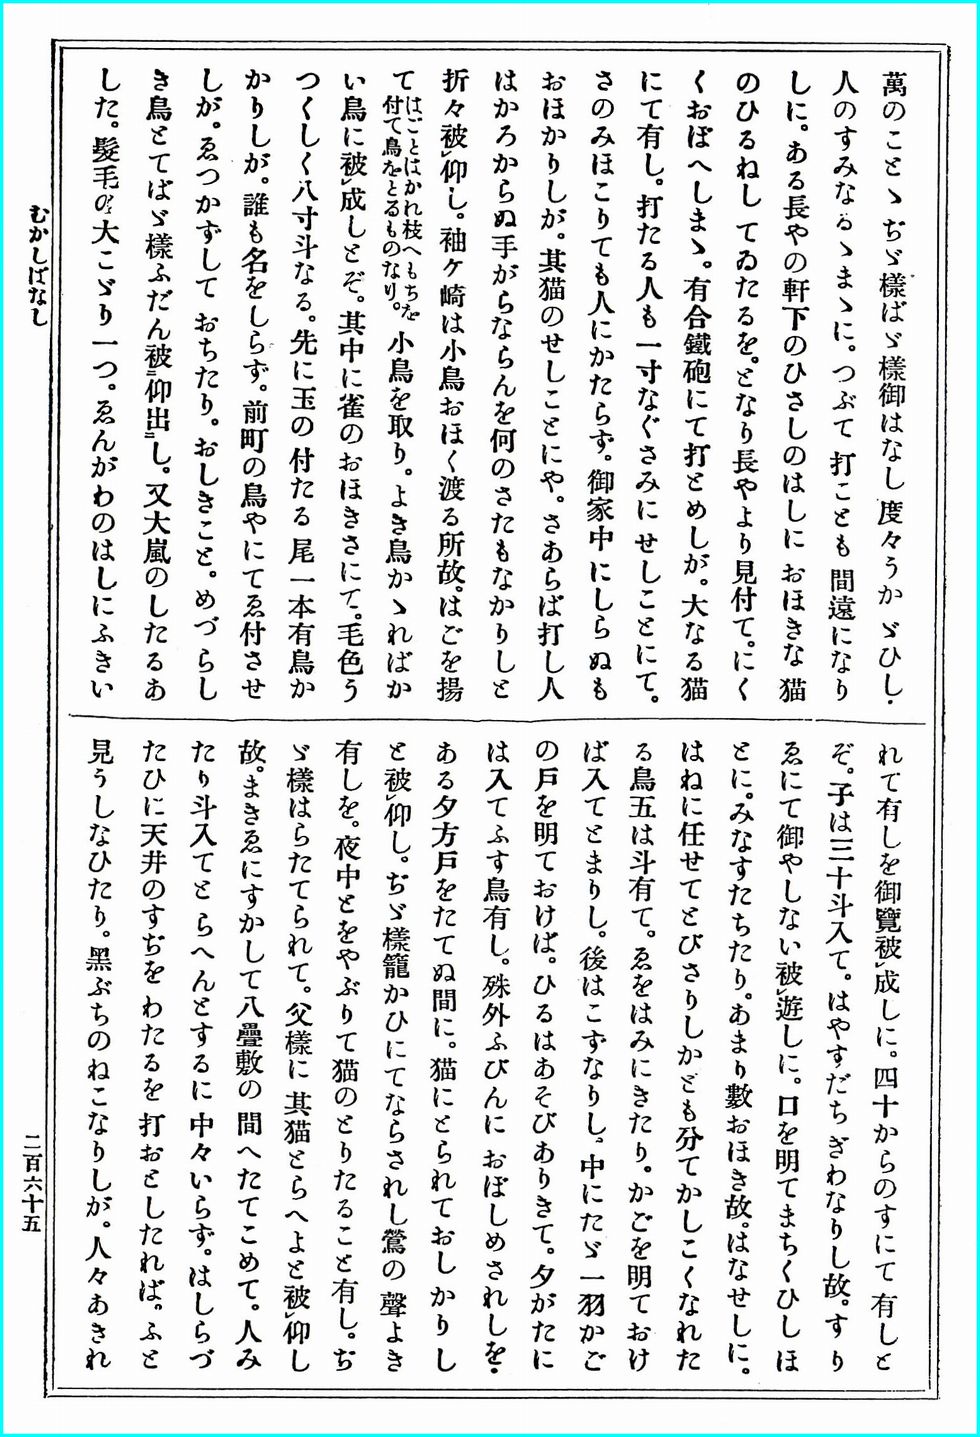 萬のことゝぢゞ樣ばゞ樣御はなし度々うかゞひし。
人のすみなるゝまゝに。つぶて打ことも間遠になり
しに。ある長やの軒下のひさしのはしにおほきな猫
のひるねしてゐたるを。となり長やより見付て。にく
くおぼへしまゝ。有合鐵砲にて打とめしが。大なる猫
にて有し。打たる人も一寸なぐさみにせしことにて。
さのみほこりても人にかたらず。御家中にしらぬも
おほかりしが。其猫のせしことにや。さあらば打し人
はかろからぬ手がらならんを何のさたもなかりしと
折々被レ仰し。袖ケ崎は小鳥おほく渡る所故。はごを揚
てはごとはかれ枝へもちを付て鳥をとるものなり。小鳥を取り。よき鳥かゝればか
い鳥に被レ成しとぞ。其中に雀のおほきさにて。毛色う
つくしく八寸斗なる。先に玉の付たる尾一本有鳥か
かりしが。誰も名をしらず。前町の鳥やにてゑ付させ
しが。ゑつかずしておちたり。おしきこと。めづらし
き鳥とてばゞ樣ふだん被二仰出一し。又大嵐のしたるあ
した。髮毛の大こゞり一つ。ゑんがわのはしにふきい
れて有しを御覽被レ成しに。四十からのすにて有しと
ぞ。子は三十斗入て。はやすだちぎわなりし故。すり
ゑにて御やしない被レ遊しに。口を明てまちくひしほ
とに。みなすたちたり。あまり數おほき故。はなせしに。
はねに任せてとびさりしかども分てかしこくなれた
る鳥五は斗有て。ゑをはみにきたり。かごを明ておけ
ば入てとまりし。後はこずなりし。中にたゞ一羽かご
の戸を明ておけば。ひるはあそびありきて。夕がたに
は入てふす鳥有し。殊外ふびんにおぼしめされしを。
ある夕方戸をたてぬ間に。猫にとられておしかりし
と被レ仰し。ぢゞ樣籠かひにてならされし鶯の聲よき
有しを。夜中とをやぶりて猫のとりたること有し。ぢ
ゞ樣はらたてられて。父樣に其猫とらへよと被レ仰し
故。まきゑにすかして八疊敷の間へたてこめて。人み
たり斗入てとらへんとするに中々いらず。はしらづ
たひに天井のすぢをわたるを打おとしたれば。ふと
見うしなひたり。黑ぶちのねこなりしが。人々あきれ
むかしばなし
二百六十五